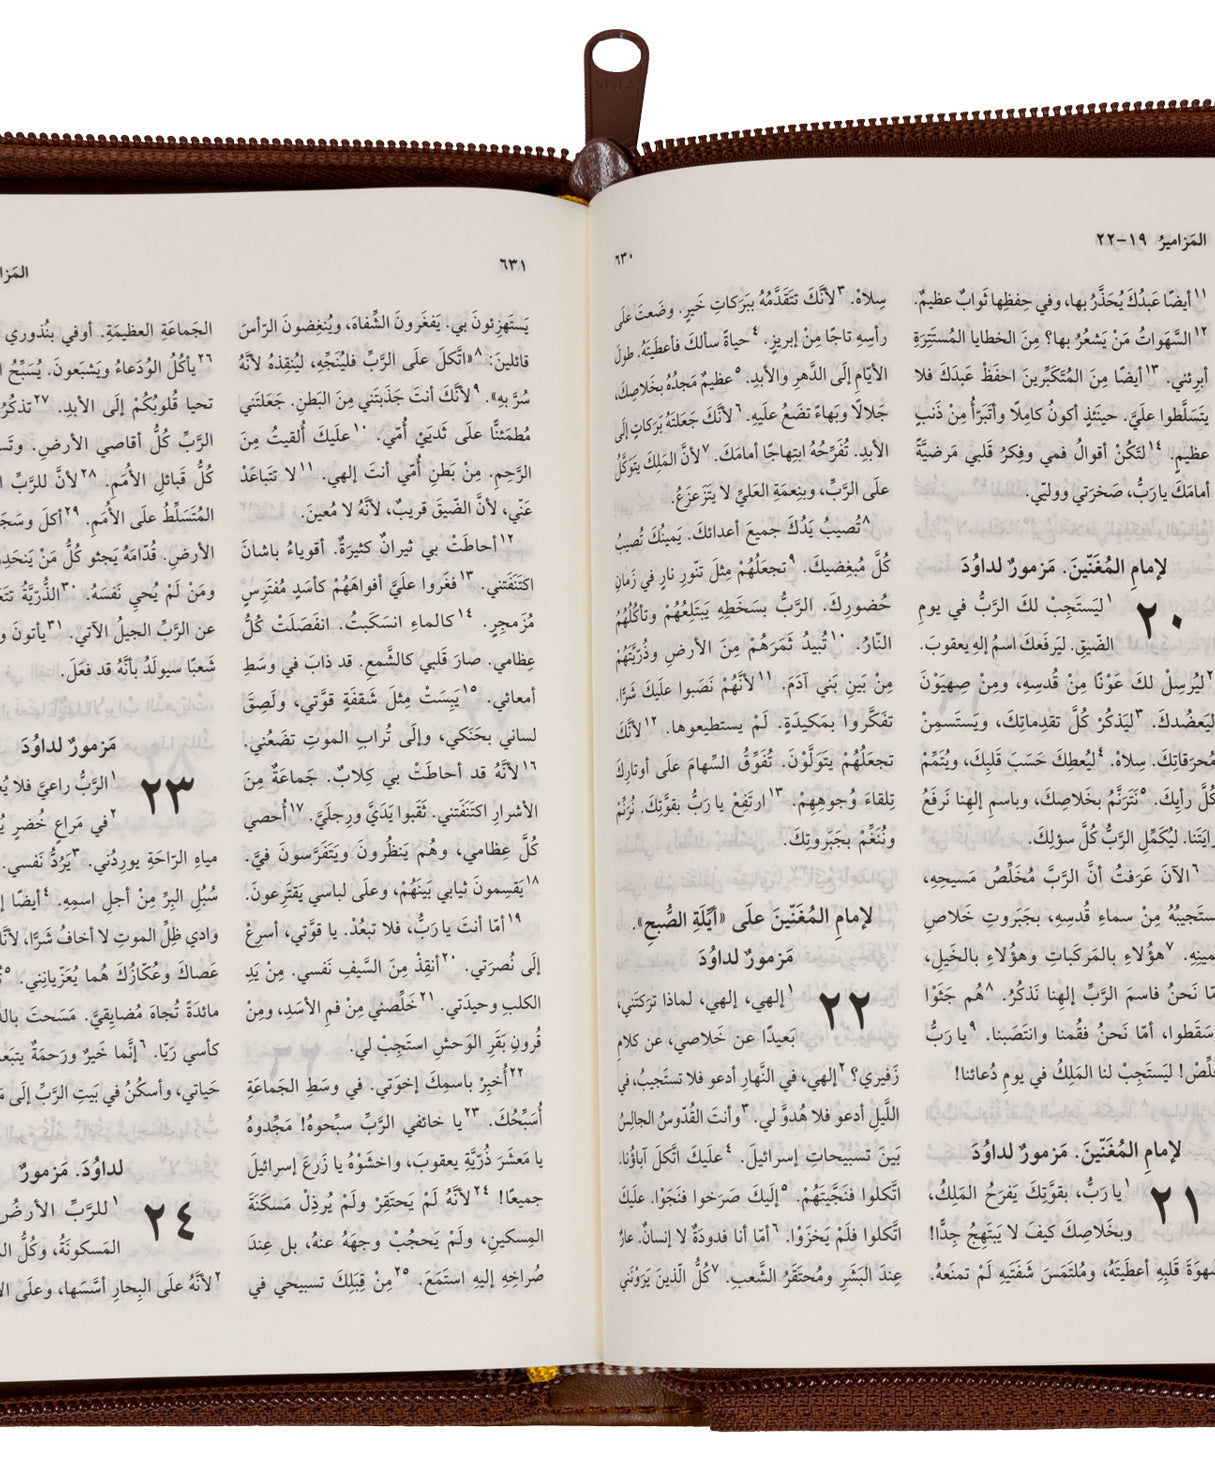 المَزاميرُ ١٩-٢٢
١١ أيضًا عَبدُكَ يُحَذَّرُ بها، وفي حِفظِها ثَوابٌ عظيمٌ.
١٢ السَّهَواتُ مَنْ يَشعُرُ بها؟ مِنَ الخطايا المُستَتِرَةِ
أبرِئني. ١٣ أيضًا مِنَ المُتَكَبِّرينَ احفَظْ عَبدَكَ فلا
يتَسَلَّطوا علَيَّ. حينَئذٍ أكونُ كامِلًا وأتَبَرّأُ مِنْ ذَنبٍ
عظيمٍ. ١٤ لتَكُنْ أقوالُ فمي وفِكرُ قَلبي مَرضيَّةً
أمامَكَ يا رَبُّ، صَخرَتي ووليّي.
لإمامِ المُغَنّينَ. مَزمورٌ لداوُدَ
٢٠ ١ ليَستَجِبْ لكَ الرَّبُّ في يومِ
الضّيقِ. ليَرفَعكَ اسمُ إلهِ يعقوبَ.
٢ ليُرسِلْ لكَ عَوْنًا مِنْ قُدسِهِ، ومِنْ صِهيَوْنَ
ليَعضُدكَ. ٣ ليَذكُرْ كُلَّ تقدِماتِكَ، ويَستَسمِنْ
مُحرَقاتِكَ. سِلاهْ. ٤ ليُعطِكَ حَسَبَ قَلبِكَ، ويُتَمِّمْ
كُلَّ رأيِكَ. ٥ نَتَرَنَّمُ بخَلاصِكَ، وباسمِ إلهِنا نَرفَعُ
رايَتَنا. ليُكَمِّلِ الرَّبُّ كُلَّ سؤلِكَ.
٦ الآنَ عَرَفتُ أنَّ الرَّبَّ مُخَلِّصُ مَسيحِهِ،
ستَجيبُهُ مِنْ سماءِ قُدسِهِ، بجَبَروتِ خَلاصِ
مينِهِ. ٧ هؤُلاءِ بالمَركَباتِ وهؤُلاءِ بالخَيلِ،
مّا نَحنُ فاسمَ الرَّبِّ إلهِنا نَذكُرُ. ٨ هُم جَثَوْا
سَقَطوا، أمّا نَحنُ فقُمنا وانتَصَبنا. ٩ يا رَبُّ
خلِّصْ! ليَستَجِبْ لنا المَلِكُ في يومِ دُعائنا!
لإمامِ المُغَنّينَ. مَزمورٌ لداوُدَ
٢١ ١ يا رَبُّ، بقوَّتِكَ يَفرَحُ المَلِكُ،
وبخَلاصِكَ كيفَ لا يَبتَهِجُ جِدًّا!
شهوَةَ قَلبِهِ أعطَيتَهُ، ومُلتَمَسَ شَفَتَيهِ لَمْ تمنَعهُ.
٦٣٠
سِلاهْ. ٣ لأنَّكَ تتَقَدَّمُهُ ببَرَكاتِ خَيرٍ. وضَعتَ علَى
رأسِهِ تاجًا مِنْ إبريزٍ. ٤ حياةً سألكَ فأعطَيتَهُ. طولَ
الأيّامِ إلَى الدَّهرِ والأبدِ. ٥ عظيمٌ مَجدُهُ بخَلاصِكَ،
جَلالًا وبَهاءً تضَعُ علَيهِ. ٦ لأنَّكَ جَعَلتَهُ بَرَكاتٍ إلَى
الأبدِ. تُفَرِّحُهُ ابتِهاجًا أمامَكَ. ٧ لأنَّ المَلِكَ يتَوَكَّلُ
علَى الرَّبِّ، وبنِعمَةِ العَليِّ لا يتَزَعزَعُ.
٨ تُصيبُ يَدُكَ جميعَ أعدائكَ. يَمينُكَ تُصيبُ
كُلَّ مُبغِضيكَ. ٩ تجعَلُهُمْ مِثلَ تنّورِ نارٍ في زَمانِ
حُضورِكَ. الرَّبُّ بسَخَطِهِ يَبتَلِعُهُمْ وتأكُلُهُمُ
النّارُ. ١٠ تُبيدُ ثَمَرَهُمْ مِنَ الأرضِ وذُرّيَّتَهُمْ
مِنْ بَينِ بَني آدَمَ. ١١ لأنَّهُمْ نَصَبوا علَيكَ شَرًّا.
تفَكَّروا بمَكيدَةٍ. لَمْ يستَطيعوها. ١٢ لأنَّكَ
تجعَلُهُمْ يتَوَلَّوْنَ. تُفَوِّقُ السِّهامَ علَى أوتارِكَ
تِلقاءَ وُجوهِهِمْ. ١٣ ارتَفِعْ يا رَبُّ بقوَّتِكَ. نُرَنِّمُ
ونُنَغِّمْ بجَبَروتِكَ.
لإمامِ المُغَنّينَ علَى «أيِّلَةِ الصُّبحِ».
مَزمورٌ لداوُدَ
٢٢ ١ إلهي، إلهي، لماذا ترَكتَني،
بَعيدًا عن خَلاصي، عن كلامِ
زَفيري؟ ٢ إلهي، في النَّهارِ أدعو فلا تستَجيبُ، في
اللَّيلِ أدعو فلا هُدوَّ لي. ٣ وأنتَ القُدّوسُ الجالِسُ
بَينَ تسبيحاتِ إسرائيلَ. ٤ علَيكَ اتَّكلَ آباؤُنا.
اتَّكلوا فنَجَّيتَهُمْ. ٥ إلَيكَ صَرَخوا فنَجَوْا. علَيكَ
اتَّكلوا فلَمْ يَخزَوْا. ٦ أمّا أنا فدودَةٌ لا إنسانٌ. عارٌ
عِندَ البَشَرِ ومُحتَقَرُ الشَّعبِ. ٧ كُلُّ الّذينَ يَرَوْنَني
٦٣١
يَستَهزِئونَ بي. يَفغَرونَ الشِّفاهَ، ويُنغِضونَ الرّأسَ
قائلينَ: ٨ «اتَّكلَ علَى الرَّبِّ فليُنَجِّهِ، ليُنقِذهُ لأنَّهُ
سُرَّ بهِ». ٩ لأنَّكَ أنتَ جَذَبتَني مِنَ البَطنِ. جَعَلتَني
مُطمَئنًّا علَى ثَديَيْ أُمّي. ١٠ علَيكَ أُلقيتُ مِنَ
الرَّحِمِ. مِنْ بَطنِ أُمّي أنتَ إلهي. ١١ لا تتَباعَدْ
عَنّي، لأنَّ الضّيقَ قريبٌ، لأنَّهُ لا مُعينَ.
١٢ أحاطَتْ بي ثيرانٌ كثيرَةٌ. أقوياءُ باشانَ
اكتَنَفَتني. ١٣ فغَروا علَيَّ أفواهَهُمْ كأسَدٍ مُفتَرِسٍ
مُزَمجِرٍ. ١٤ كالماءِ انسَكَبتُ. انفَصَلَتْ كُلُّ
عِظامي. صارَ قَلبي كالشَّمعِ. قد ذابَ في وسَطِ
أمعائي. ١٥ يَبِسَتْ مِثلَ شَقفَةٍ قوَّتي، ولَصِقَ
لساني بحَنَكي، وإلَى تُرابِ الموتِ تضَعُني.
١٦ لأنَّهُ قد أحاطَتْ بي كِلابٌ. جَماعَةٌ مِنَ
الأشرارِ اكتَنَفَتني. ثَقَبوا يَدَيَّ ورِجلَيَّ. ١٧ أُحصي
كُلَّ عِظامي، وهُم يَنظُرونَ ويَتَفَرَّسونَ فيَّ.
١٨ يَقسِمونَ ثيابي بَينَهُمْ، وعلَى لباسي يَقتَرِعونَ.
١٩ أمّا أنتَ يا رَبُّ، فلا تبعُدْ. يا قوَّتي، أسرِعْ
إلَى نُصرَتي. ٢٠ أنقِذْ مِنَ السَّيفِ نَفسي. مِنْ يَدِ
الكلبِ وحيدَتي. ٢١ خَلِّصني مِنْ فمِ الأسَدِ، ومِنْ
قُرونِ بَقَرِ الوَحشِ استَجِبْ لي.
٢٢ أُخبِرْ باسمِكَ إخوَتي. في وسَطِ الجَماعَةِ
أُسَبِّحُكَ. ٢٣ يا خائفي الرَّبِّ سبِّحوهُ! مَجِّدوهُ
يا مَعشَرَ ذُرّيَّةِ يعقوبَ، واخشَوْهُ يا زَرعَ إسرائيلَ
جميعًا! ٢٤ لأنَّهُ لَمْ يَحتَقِرْ ولَمْ يُرذِلْ مَسكَنَةَ
المِسكينِ، ولَمْ يَحجُبْ وجهَهُ عنهُ، بل عِندَ
صُراخِهِ إليهِ استَمَعَ. ٢٥ مِنْ قِبَلِكَ تسبيحي في
المَزا
الجَماعَةِ العظيمَةِ. أوفي بنُذوري
٢٦ يأكُلُ الوُدَعاءُ ويَشبَعونَ. يُسَبِّحُ
تحيا قُلوبُكُمْ إلَى الأبدِ. ٢٧ تذكُرُ
الرَّبِّ كُلُّ أقاصي الأرضِ. وتَس
كُلُّ قَبائلِ الأُمَمِ. ٢٨ لأنَّ للرَّبِّ ا
المُتَسَلِّطُ علَى الأُمَمِ. ٢٩ أكلَ وسَجَ
الأرضِ. قُدّامَهُ يَجثو كُلُّ مَنْ يَنحَدِ
ومَنْ لَمْ يُحيِ نَفسَهُ. ٣٠ الذُّرّيَّةُ تتَعَ
عن الرَّبِّ الجيلُ الآتي. ٣١ يأتونَ و
شَعبًا سيولَدُ بأنَّهُ قد فعَلَ.
مَزمورٌ لداوُدَ
٢٣ ١ الرَّبُّ راعيَّ فلا يُعَ
٢ في مَراعٍ خُضرٍ يُ
مياهِ الرّاحَةِ يورِدُني. ٣ يَرُدُّ نَفسي.
سُبُلِ البِرِّ مِنْ أجلِ اسمِهِ. ٤ أيضًا إ
وادي ظِلِّ الموتِ لا أخافُ شَرًّا، لأنَّكَ
عَصاكَ وعُكّازُكَ هُما يُعَزّيانِني. ٥ تُ
مائدَةً تُجاهَ مُضايِقيَّ. مَسَحتَ بالدُّ
كأسي رَيّا. ٦ إنَّما خَيرٌ ورَحمَةٌ يتبَعا
حَياتي، وأسكُنُ في بَيتِ الرَّبِّ إلَى مَ
لداوُدَ. مَزمورٌ
٢٤ ١ للرَّبِّ الأرضُ
المَسكونَةُ، وكُلُّ ال
٢ لأنَّهُ علَى البِحارِ أسَّسَها، وعلَى الأ